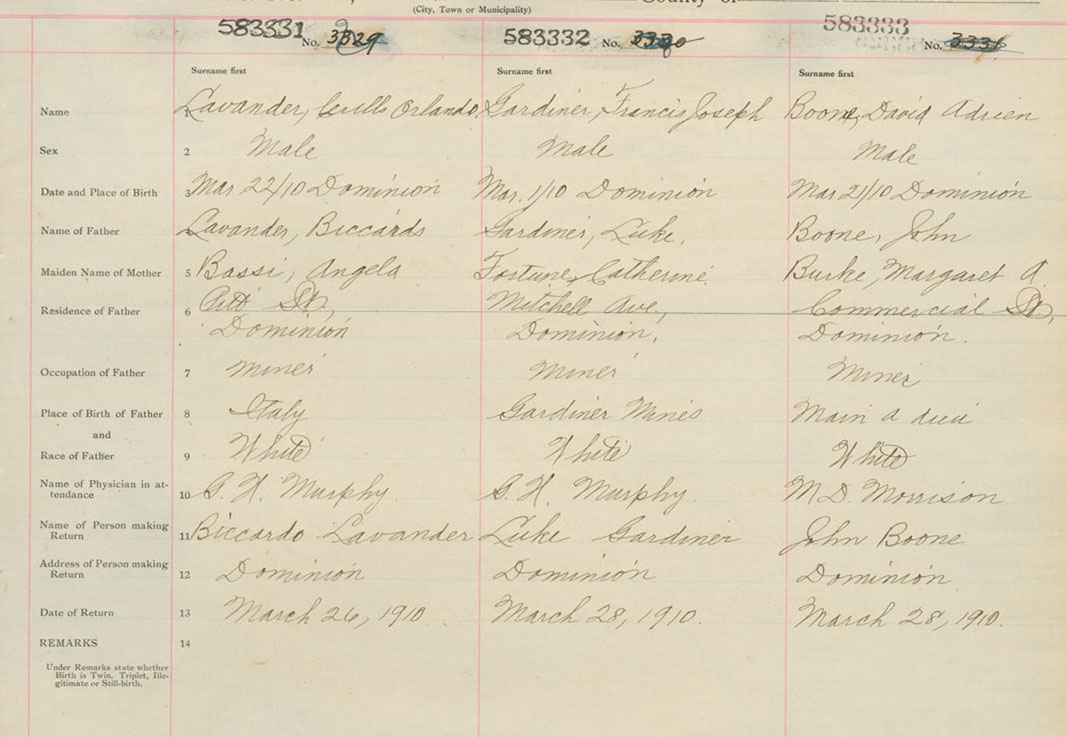 (City, Town or Municipality)
County of
583331 No. 3329 583332 No. 3330 583333 No. 3331
Surname first Surname first Surname first
Name 1 Lavander, Cerills Orlando, Gardiner, Francis Joseph Boone, David Adrien
Sex 2 Male Male Male
Date and Place of Birth 3 Mar 22/10 Dominion Mar. 1/10 Dominion Mar 21/10 Dominion
Name of Father 4 Lavander, Biccards Gardiner, Luke. Boone, John
Maiden Name of Mother 5 Bassi, Angela Fortune, Catherine. Burke, Margaret A
Residence of Father 6 Pitt St, Mitchell Ave, Commercial St,
Dominion Dominion, Dominion.
Occupation of Father 7 Miner Miner Miner
Place of Birth of Father 8 Italy Gardiner Mines Main a dieu
and
Race of Father 9 White White White
Name of Physician in at-
tendance 10 G. H. Murphy. G. H. Murphy. M D. Morrison
Name of Person making
Return 11 Biccardo Lavander Luke Gardiner John Boone
Address of Person making
Return 12 Dominion Dominion Dominion
Date of Return 13 March 26, 1910. March 28, 1910. March 28, 1910.
REMARKS 14
Under Remarks state whether
Birth is Twin, Triplet, Ille-
gitimate or Still-birth.